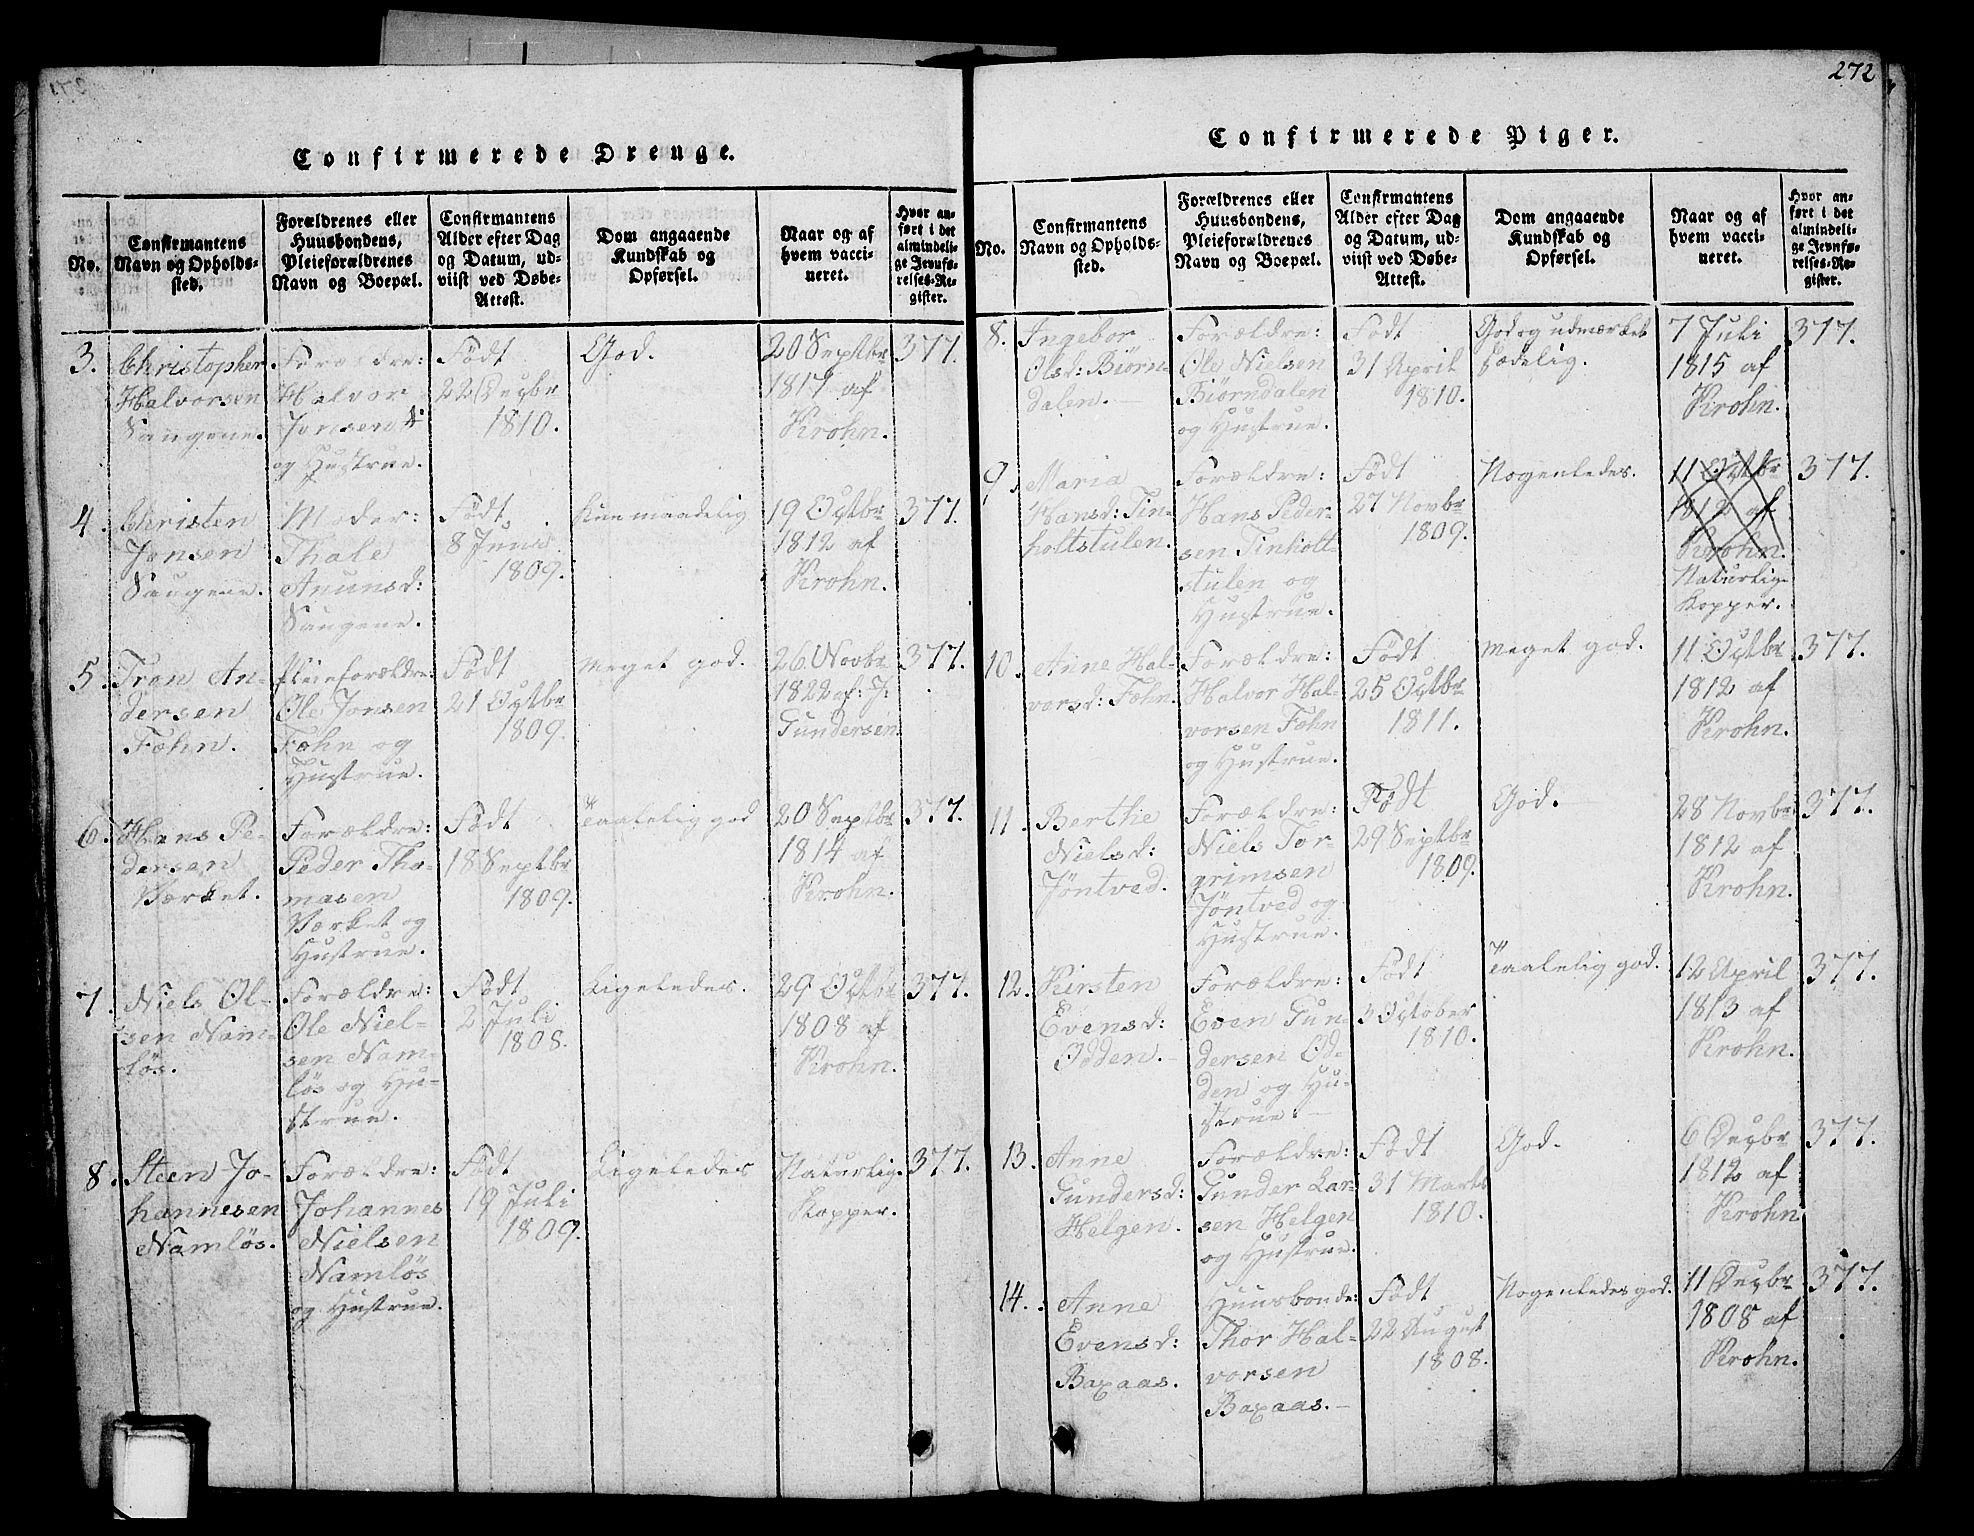 272
Confirmerede Drenge.
No.
Confirmantens
Navn og Opholds-
sted.
Forældrenes eller
Huusbondens,
Pleieforældrenes
Navn og Boepæl.
Confirmantens
Alder efter Dag
og Datum, ud-
viist ved Døbe-
Attest.
Dom angaaende
Kundskab og
Opførsel.
Naar og af
hvem vacci-
neret.
Hvor an-
ført i det
almindeli-
ge Jevnfø-
relses-Re-
gister.
3.
Christopher
Halvorsen
Saugene.
Forældre:
Halvor
Jonsen
og Hustrue.
Född
22 Decbr
1810.
God.
20 Septbr
1817 af
Krohn.
377.
4.
Christen
Jonsen
Saugene.
Moder:
Thale
Anunsd:
Saugene.
Född
8 Junii
1809.
Kun maadelig
19 Octbr
1812 af
Krohn.
377.
5.
Tron An-
dersen
Fæhn.
Pleieforældre:
Ole Jonsen
Fæhn og
Hustrue.
Född
21 Octbr
1809.
Meget god.
26 Novbr
1822 af: J:
Gundersen
377.
6.
Hans Pe-
dersen
Værket.
Forældre:
Peder Tho-
masen
Værket og
Hustrue.
Född
18 Septbr
1809.
Taalelig god
20 Septbr
1814 af
Krohn.
377.
7.
Niels Ol-
sen Nam-
løs.
Forældre:
Ole Niel-
sen Nam-
løs og Hu-
strue.
Född
2 Juli
1808.
Ligeledes.
29 Octbr
1808 af
Krohn.
377.
8.
Steen Jo-
hannesen
Namløs.
Forældre:
Johannes
Nielsen
Namløs
og Hustrue.
Född
19 Juli
1809.
Ligeledes
Naturlig.
Kopper.
377.
Confirmerede Piger.
No.
Confirmantens
Navn og Opholds-
sted.
Forældrenes eller
Huusbondens,
Pleieforældrenes
Navn og Boepæl.
Confirmantens
Alder efter Dag
og Datum, ud-
viist ved Døbe-
Attest.
Dom angaaende
Kundskab og
Opførsel.
Naar og af
hvem vacci-
neret.
Hvor an-
ført i det
almindeli-
ge Jevnfø-
relses-Re-
gister.
8.
Ingebor
Olsd: Biørn-
dalen.
Forældre:
Ole Nielsen
Biørndalen
og Hustrue.
Född
31 April
1810.
God og udmærket
sædelig.
7 Juli
1815 af
Krohn.
377.
9.
Maria
Hansd: Tin-
holtstulen.
Forældre:
Hans Peder-
sen Tinholt-
stulen og
Hustrue.
Född
27 Novbr
1809.
Nogenledes.
11 Octbr
1812 af
Krohn.
Naturlig-
Kopper.
377.
10.
Anne Hal-
vorsd: Fæhn.
Forældre:
Halvor Hal-
vorsen Fæhn
og Hustrue.
Född
25 Octbr
1811.
Meget god.
11 Octbr
1812 af
Krohn.
377.
11.
Berthe
Nielsd:
Jøntved.
Forældre:
Niels Tor-
grimsen
Jøntved og
Hustrue.
Född
29 Septbr
1809.
God.
28 Novbr
1812 af
Krohn.
377.
12.
Kirsten
Evensd:
Odden.
Forældre:
Even Gun-
dersen Od-
den og Hu-
strue.
Född
October
1810.
Taalelig god.
12 April
1813 af
Krohn.
377.
13.
Anne
Gundersd:
Helgen.
Forældre:
Gunder Lar-
sen Helgen
og Hustrue.
Född
31 Marts
1810.
God.
6 Decbr
1812 af
Krohn
377.
14.
Anne
Evensd:
Baxaas.
Huusbonde:
Thor Hal-
vorsen
Baxaas.
Född
22 August
1808.
Nogenledes god.
11 Decbr
1808 af
Krohn.
377.